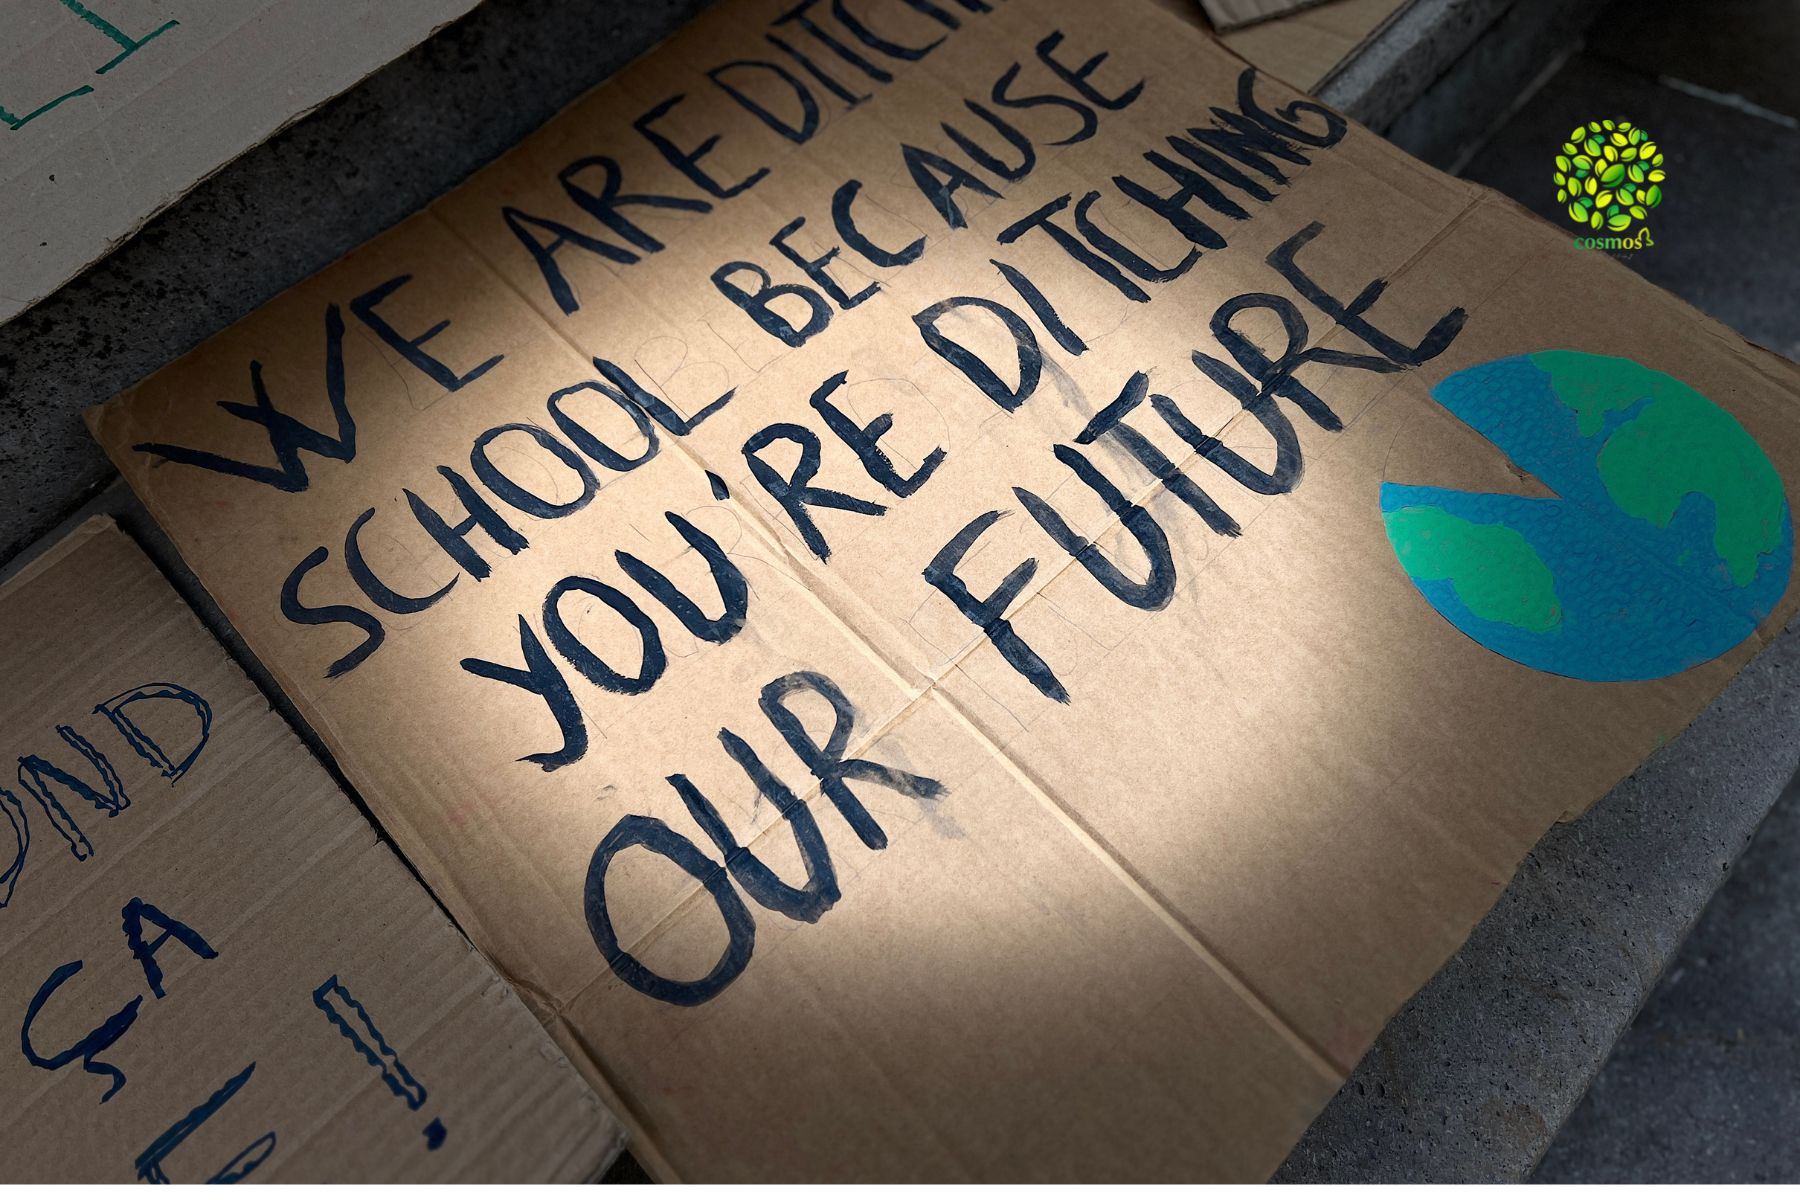 WE ARE DITCHING
SCHOOL BECAUSE
YOU'RE DITCHING
OUR FUTURE
cosmos
ÇA
!